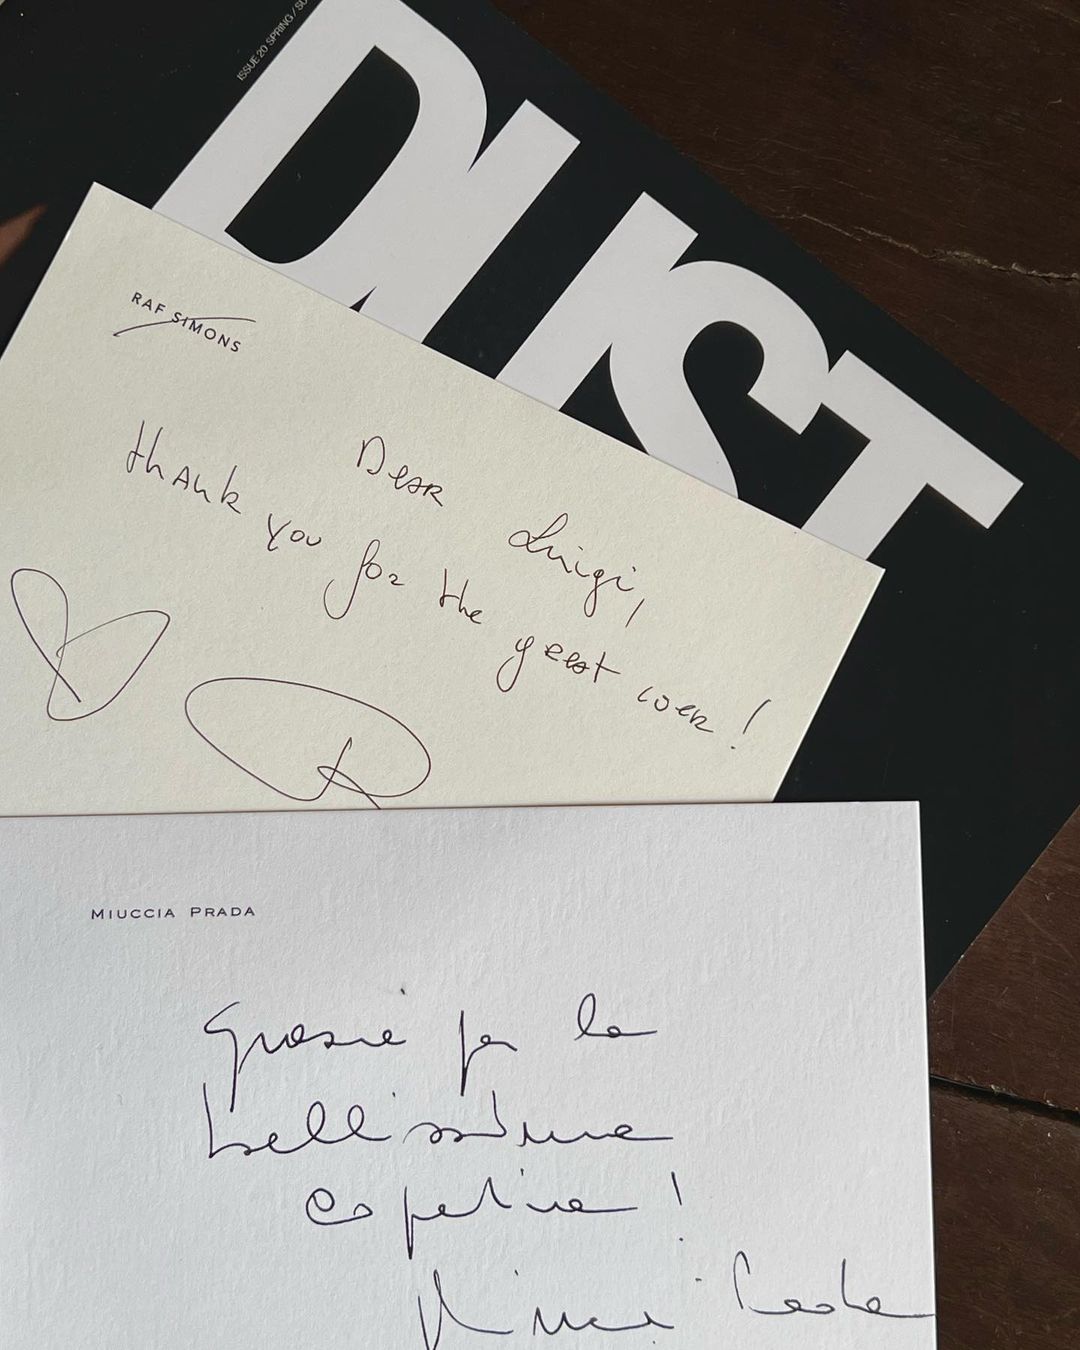 ISSUE 20 SPRING / SU
DUST
RAF SIMONS
Dear Luigi,
thank you for the great cover!
R
MIUCCIA PRADA
Grazie per la
bellissima
copertina!
Miuccia Prada